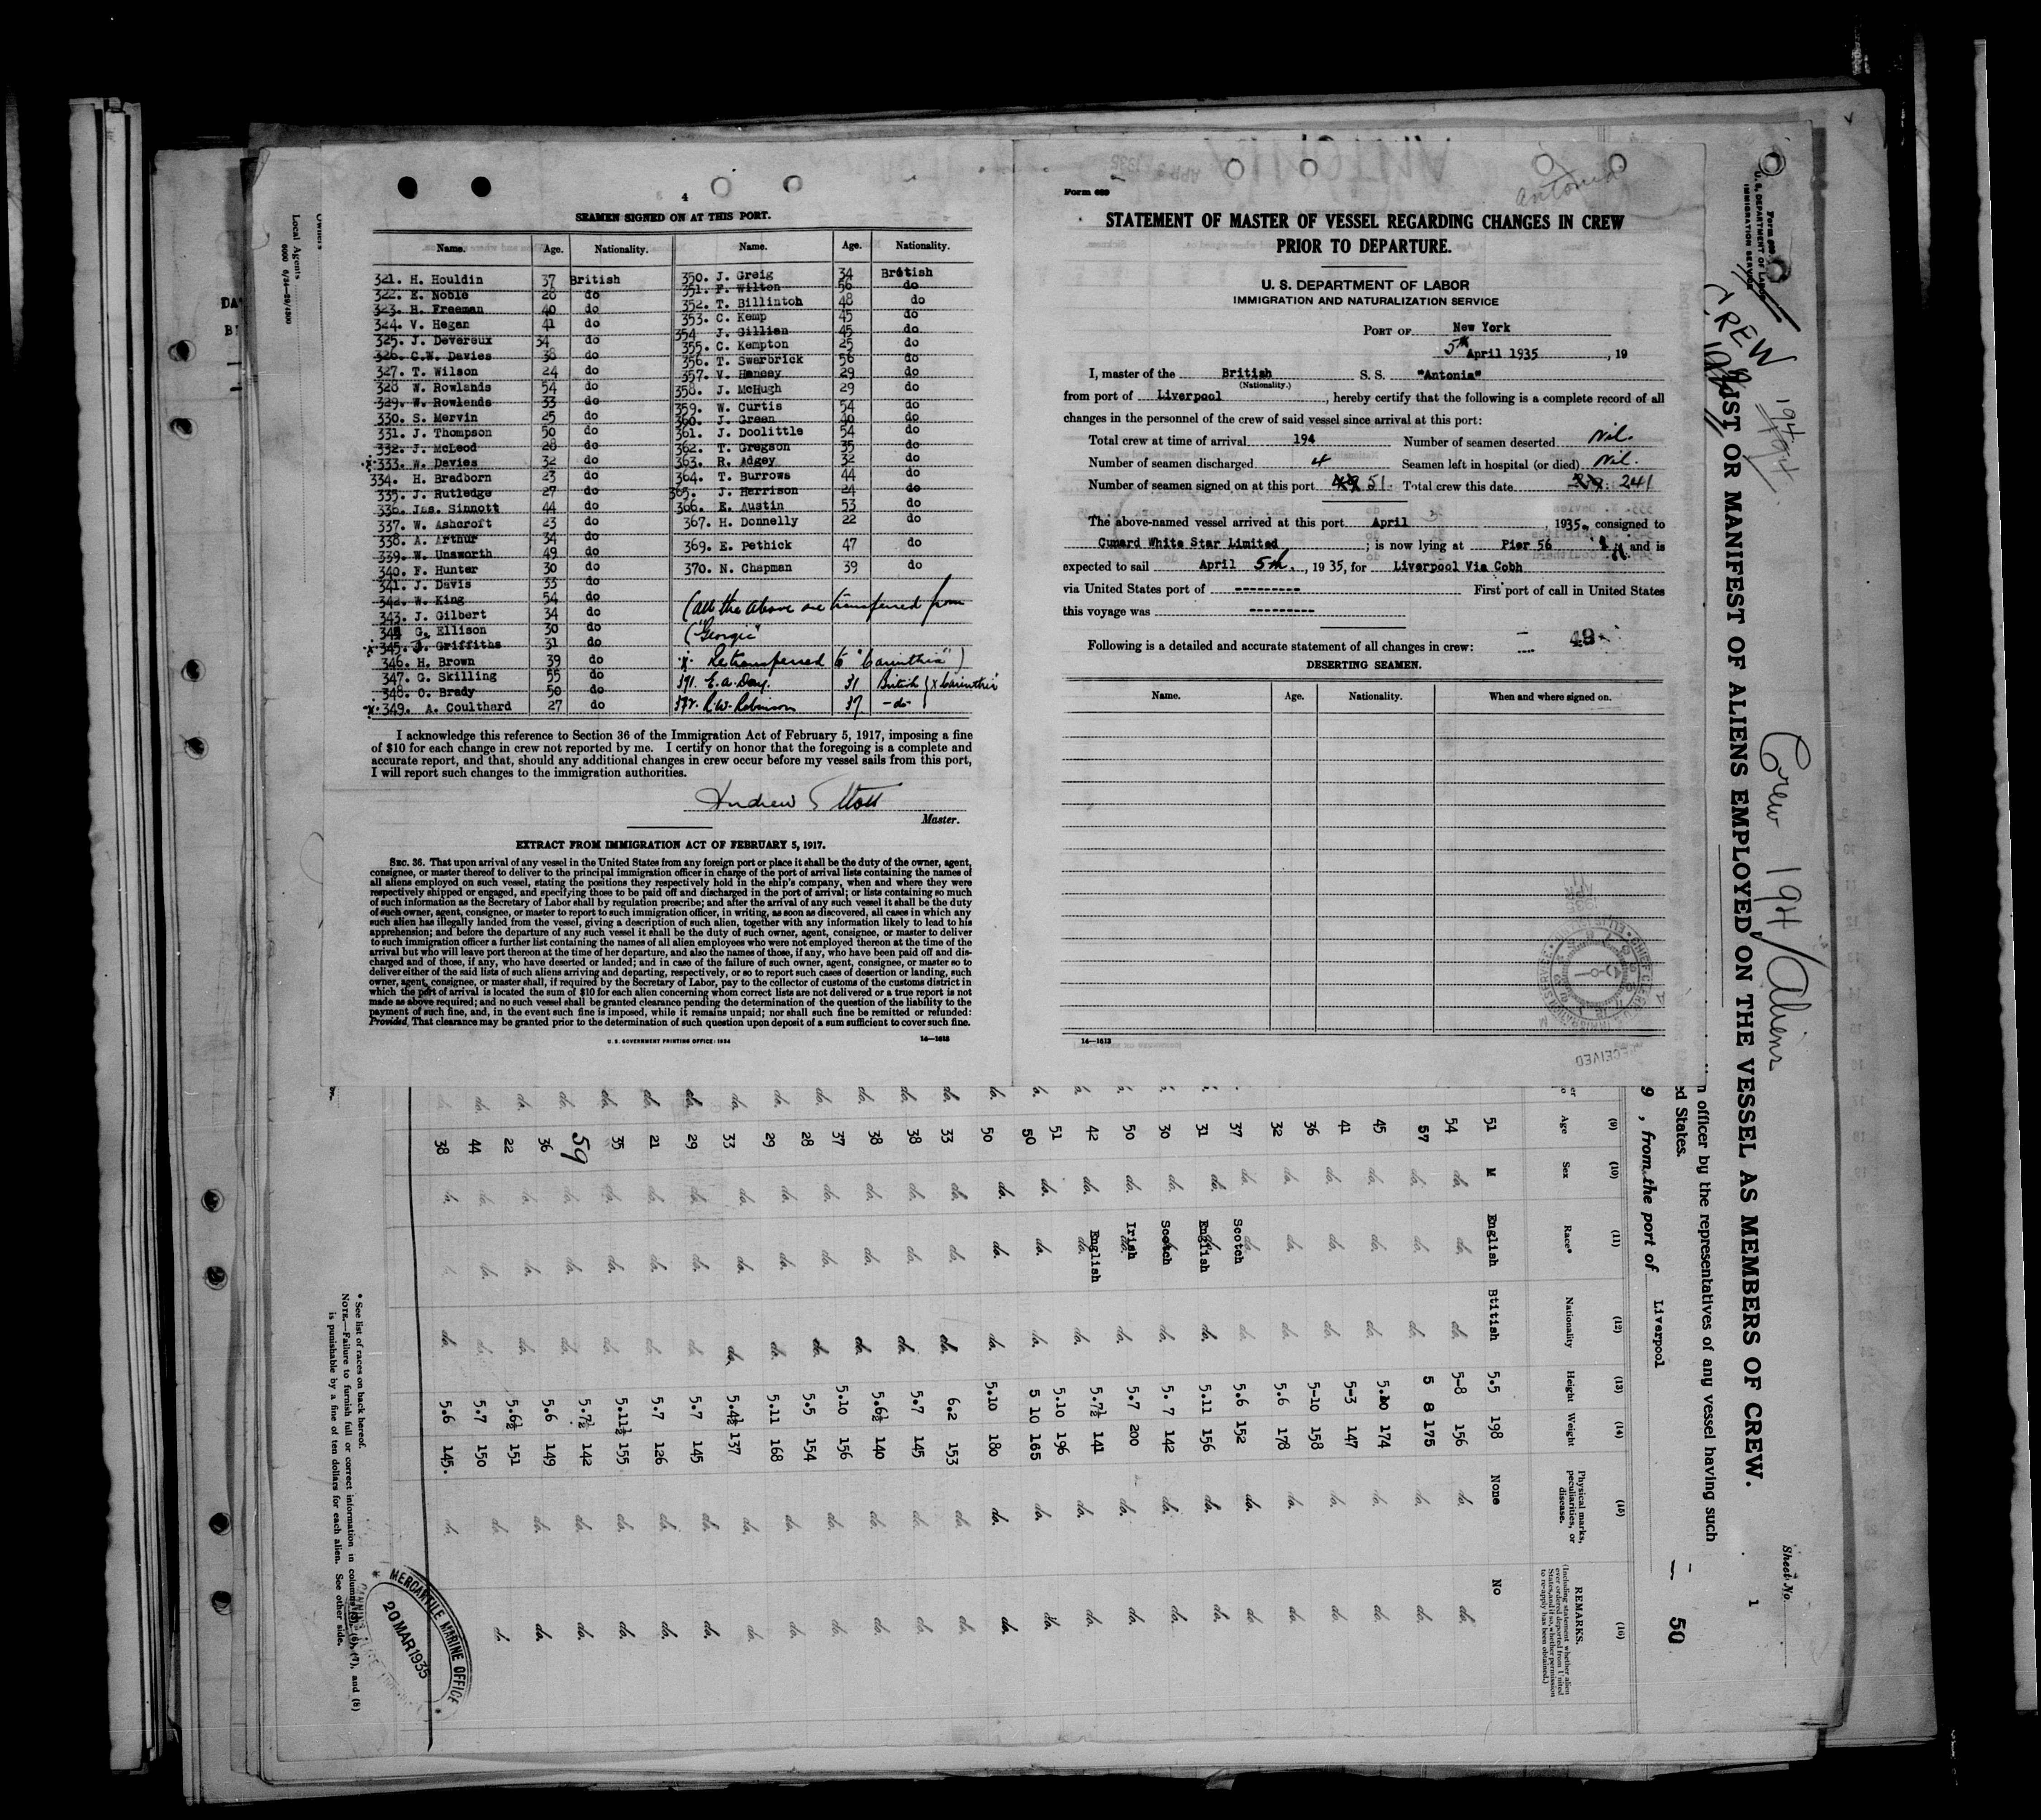 4
SEAMEN SIGNED ON AT THIS PORT.
Name. Age. Nationality. Name. Age. Nationality.
321. H. Houldin 37 British 350. J. Greig 34 British
322. E. Noble 28 do 351. F. Wilton 56 do
323. H. Freeman 40 do 352. T. Billintoh 48 do
324. V. Hegan 41 do 353. C. Kemp 45 do
325. J. Devereux 34 do 354 J. Gillian 45 do
326. C.W. Davies 38 do 355. C. Kempton 25 do
327. T. Wilson 24 do 356. T. Swarbrick 56 do
328 W. Rowlands 54 do 357. V. Hancey 29 do
329. W. Rowlends 33 do 358. J. McHugh 29 do
330. S. Mervin 25 do 359. W. Curtis 54 do
331. J. Thompson 50 do 360. J. Green 40 do
332. J. McLeod 28 do 361. J. Doolittle 54 do
x 333. W. Davies 32 do 362. T. Gregson 35 do
334. H. Bradborn 23 do 363. R. Adgey 32 do
335. J. Rutledge 27 do 364. T. Burrows 44 do
336. Jas. Sinnott 44 do 365. J. Harrison 24 do
337. W. Ashcroft 23 do 366. E. Austin 53 do
338. A. Arthur 34 do 367. H. Donnelly 22 do
339. W. Unsworth 49 do 369. E. Pethick 47 do
340. F. Hunter 30 do 370. N. Chapman 39 do
341. J. Davis 33 do
342. W. King 54 do
343. J. Gilbert 34 do (all the above are transferred from
344 G. Ellison 30 do ("Georgic"
x 345. J. Griffiths 31 do
346. H. Brown 39 do x Retransferred to "Carinthia")
347. G. Skilling 55 do 371. E. A. Day. 31 British (x Carinthia
348. O. Brady 50 do
x 349. A. Coulthard 27 do 372. R. W. Robinson 37 -do-
I acknowledge this reference to Section 36 of the Immigration Act of February 5, 1917, imposing a fine
of $10 for each change in crew not reported by me. I certify on honor that the foregoing is a complete and
accurate report, and that, should any additional changes in crew occur before my vessel sails from this port,
I will report such changes to the immigration authorities.
Andrew
Master.
EXTRACT FROM IMMIGRATION ACT OF FEBRUARY 5, 1917.
SEC. 36. That upon arrival of any vessel in the United States from any foreign port or place it shall be the duty of the owner, agent,
consignee, or master thereof to deliver to the principal immigration officer in charge of the port of arrival lists containing the names of
all aliens employed on such vessel, stating the positions they respectively hold in the ship's company, when and where they were
respectively shipped or engaged, and specifying those to be paid off and discharged in the port of arrival; or lists containing so much
of such information as the Secretary of Labor shall by regulation prescribe; and after the arrival of any such vessel it shall be the duty
of such owner, agent, consignee, or master to report to such immigration officer, in writing, as soon as discovered, all cases in which any
such alien has illegally landed from the vessel, giving a description of such alien, together with any information likely to lead to his
apprehension; and before the departure of any such vessel it shall be the duty of such owner, agent, consignee, or master to deliver
to such immigration officer a further list containing the names of all alien employees who were not employed thereon at the time of the
arrival but who will leave port thereon at the time of her departure, and also the names of those, if any, who have been paid off and dis-
charged and of those, if any, who have deserted or landed; and in case of the failure of such owner, agent, consignee, or master so to
deliver either of the said lists of such aliens arriving and departing, respectively, or so to report such cases of desertion or landing, such
owner, agent, consignee, or master shall, if required by the Secretary of Labor, pay to the collector of customs of the customs district in
which the port of arrival is located the sum of $10 for each alien concerning whom correct lists are not delivered or a true report is not
made as above required; and no such vessel shall be granted clearance pending the determination of the question of the liability to the
payment of such fine, and, in the event such fine is imposed, while it remains unpaid; nor shall such fine be remitted or refunded:
Provided, That clearance may be granted prior to the determination of such question upon deposit of a sum sufficient to cover such fine.
U. S. GOVERNMENT PRINTING OFFICE: 1934 14—1613
Form 689
Antonia
STATEMENT OF MASTER OF VESSEL REGARDING CHANGES IN CREW
PRIOR TO DEPARTURE.
U. S. DEPARTMENT OF LABOR
IMMIGRATION AND NATURALIZATION SERVICE
PORT OF New York
5th April 1935, 19
I, master of the British S. S. "Antonia"
(Nationality.)
from port of Liverpool, hereby certify that the following is a complete record of all
changes in the personnel of the crew of said vessel since arrival at this port:
Total crew at time of arrival 194 Number of seamen deserted Nil.
Number of seamen discharged 4 Seamen left in hospital (or died) Nil.
Number of seamen signed on at this port 51. Total crew this date 241
The above-named vessel arrived at this port April 3, 1935, consigned to
Cunard White Star Limited; is now lying at Pier 56 and is
expected to sail April 5th., 1935, for Liverpool Via Cobh
via United States port of --------- First port of call in United States
this voyage was ---------
Following is a detailed and accurate statement of all changes in crew: 49
DESERTING SEAMEN.
Name. Age. Nationality. When and where signed on.
14—1613
RECEIVED
Local Agents
Owners
Form 689
U. S. DEPARTMENT OF LABOR
IMMIGRATION SERVICE
CREW
Crew 194/Aliens
Sheet No. 1
LIST OR MANIFEST OF ALIENS EMPLOYED ON THE VESSEL AS MEMBERS OF CREW.
officer by the representatives of any vessel having such
ed States.
50
9, from the port of Liverpool
(9) (10) (11) (12) (13) (14) (15) (16)
Age Sex Race* Nationality Height Weight Physical marks, peculiarities, or disease. REMARKS. (Including statement whether alien ever ordered deported from United States, and if so, whether permission to re-apply has been obtained.)
51 M English Btitish 5.5 198 None No
54 do. do. do. 5-8 156 do. do.
57 do. do. do. 5 8 175 do. do.
45 do. do. do. 5.10 174 do. do.
41 do. do. do. 5-3 147 do. do.
36 do. do. do. 5-10 158 do. do.
32 do. do. do. 5.6 178 do. do.
37 do. Scotch do. 5.6 152 do. do.
31 do. English do. 5.11 156 do. do.
30 do. Scotch do. 5.7 142 do. do.
50 do. Irish do. 5.7 200 do. do.
42 do. English do. 5.7½ 141 do. do.
51 do. do. do. 5.10 196 do. do.
50 5 10 165
50 do. do. do. 5.10 180 do. do.
33 do. do. do. 6.2 153 do. do.
38 do. do. do. 5.7 145 do. do.
38 do. do. do. 5.6½ 140 do. do.
37 do. do. do. 5.10 156 do. do.
28 do. do. do. 5.5 154 do. do.
29 do. do. do. 5.11 168 do. do.
33 do. do. do. 5.4½ 137 do. do.
29 do. do. do. 5.7 145 do. do.
21 do. do. do. 5.7 126 do. do.
35 do. do. do. 5.11½ 155 do. do.
59 do. do. do. 5.7½ 142 do. do.
36 do. do. do. 5.6 149 do. do.
22 do. do. do. 5.6½ 151 do. do.
44 do. do. do. 5.7 150 do.
38 do. do. do. 5.6 145. do.
* See list of races on back hereof.
NOTE.—Failure to furnish full or correct information in columns (5), (6), (7), and (8)
is punishable by a fine of ten dollars for each alien. See other side.
MERCANTILE MARINE OFFICE
20 MAR 1935